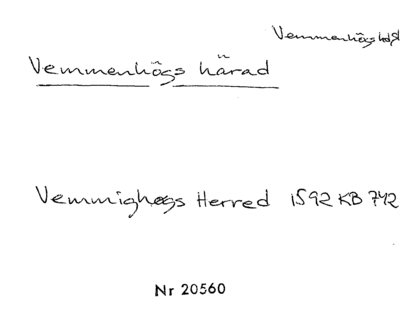 Vemmenhögs hd, Sk
Vemmenhögs härad
Vemmighøgs Herred 1592 KB 742
Nr 20560